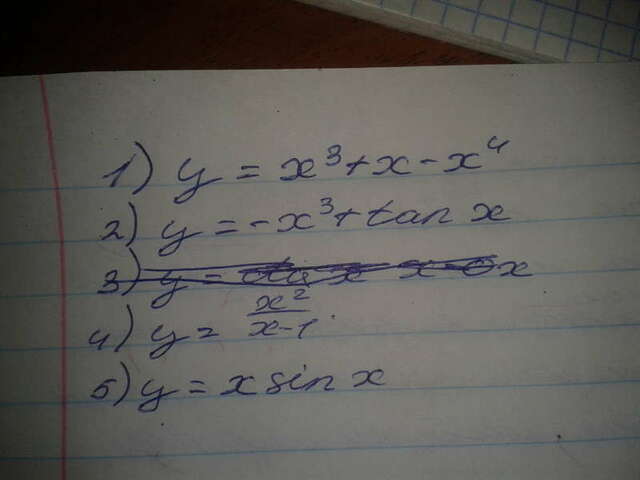 1) y = x³ + x - x⁴
2) y = -x³ + tan x
3) y =
4) y = x²/x-1
5) y = x sin x